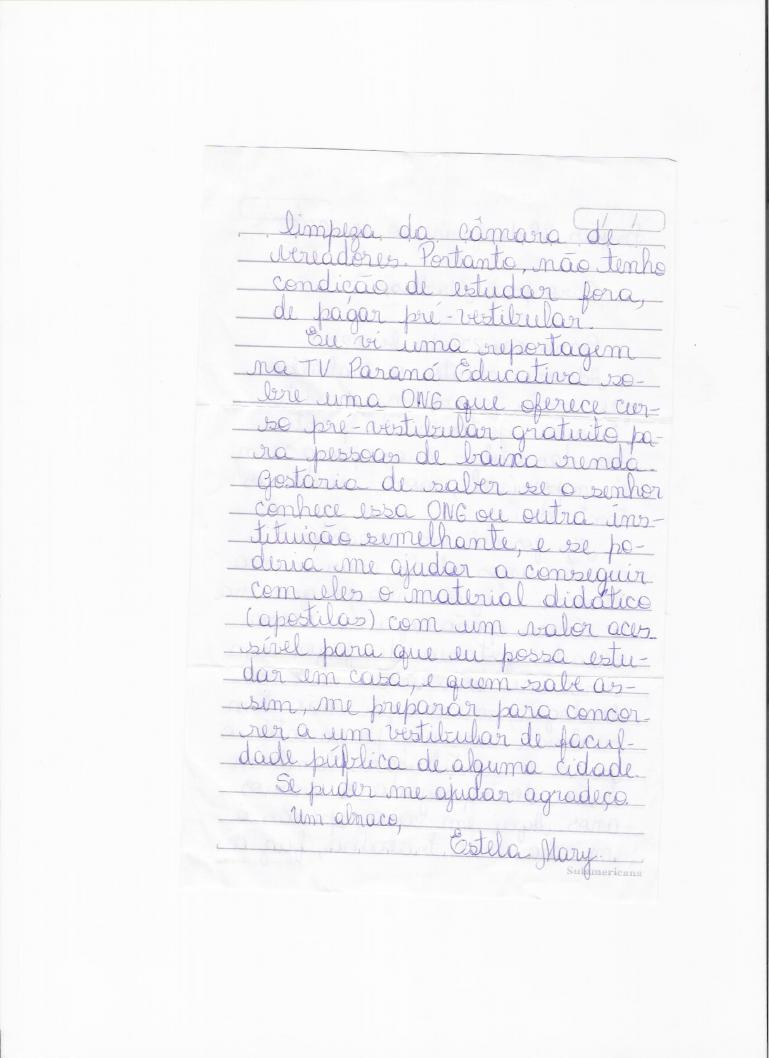 limpeza da câmara de
vereadores. Portanto, não tenho
condição de estudar fora,
de pagar pré-vestibular.
Eu vi uma reportagem
na TV Paraná Educativa so-
bre uma ONG que oferece cur-
so pré-vestibular gratuito pa-
ra pessoas de baixa renda.
Gostaria de saber se o senhor
conhece essa ONG ou outra ins-
tituição semelhante, e se po-
deria me ajudar a conseguir
com eles o material didático
(apostilas) com um valor aces
sível para que eu possa estu-
dar em casa, e quem sabe as-
sim, me preparar para concor-
rer a um vestibular de facul-
dade pública de alguma cidade.
Se puder me ajudar agradeço.
Um abraco,
Estela Mary.
Sulamericana